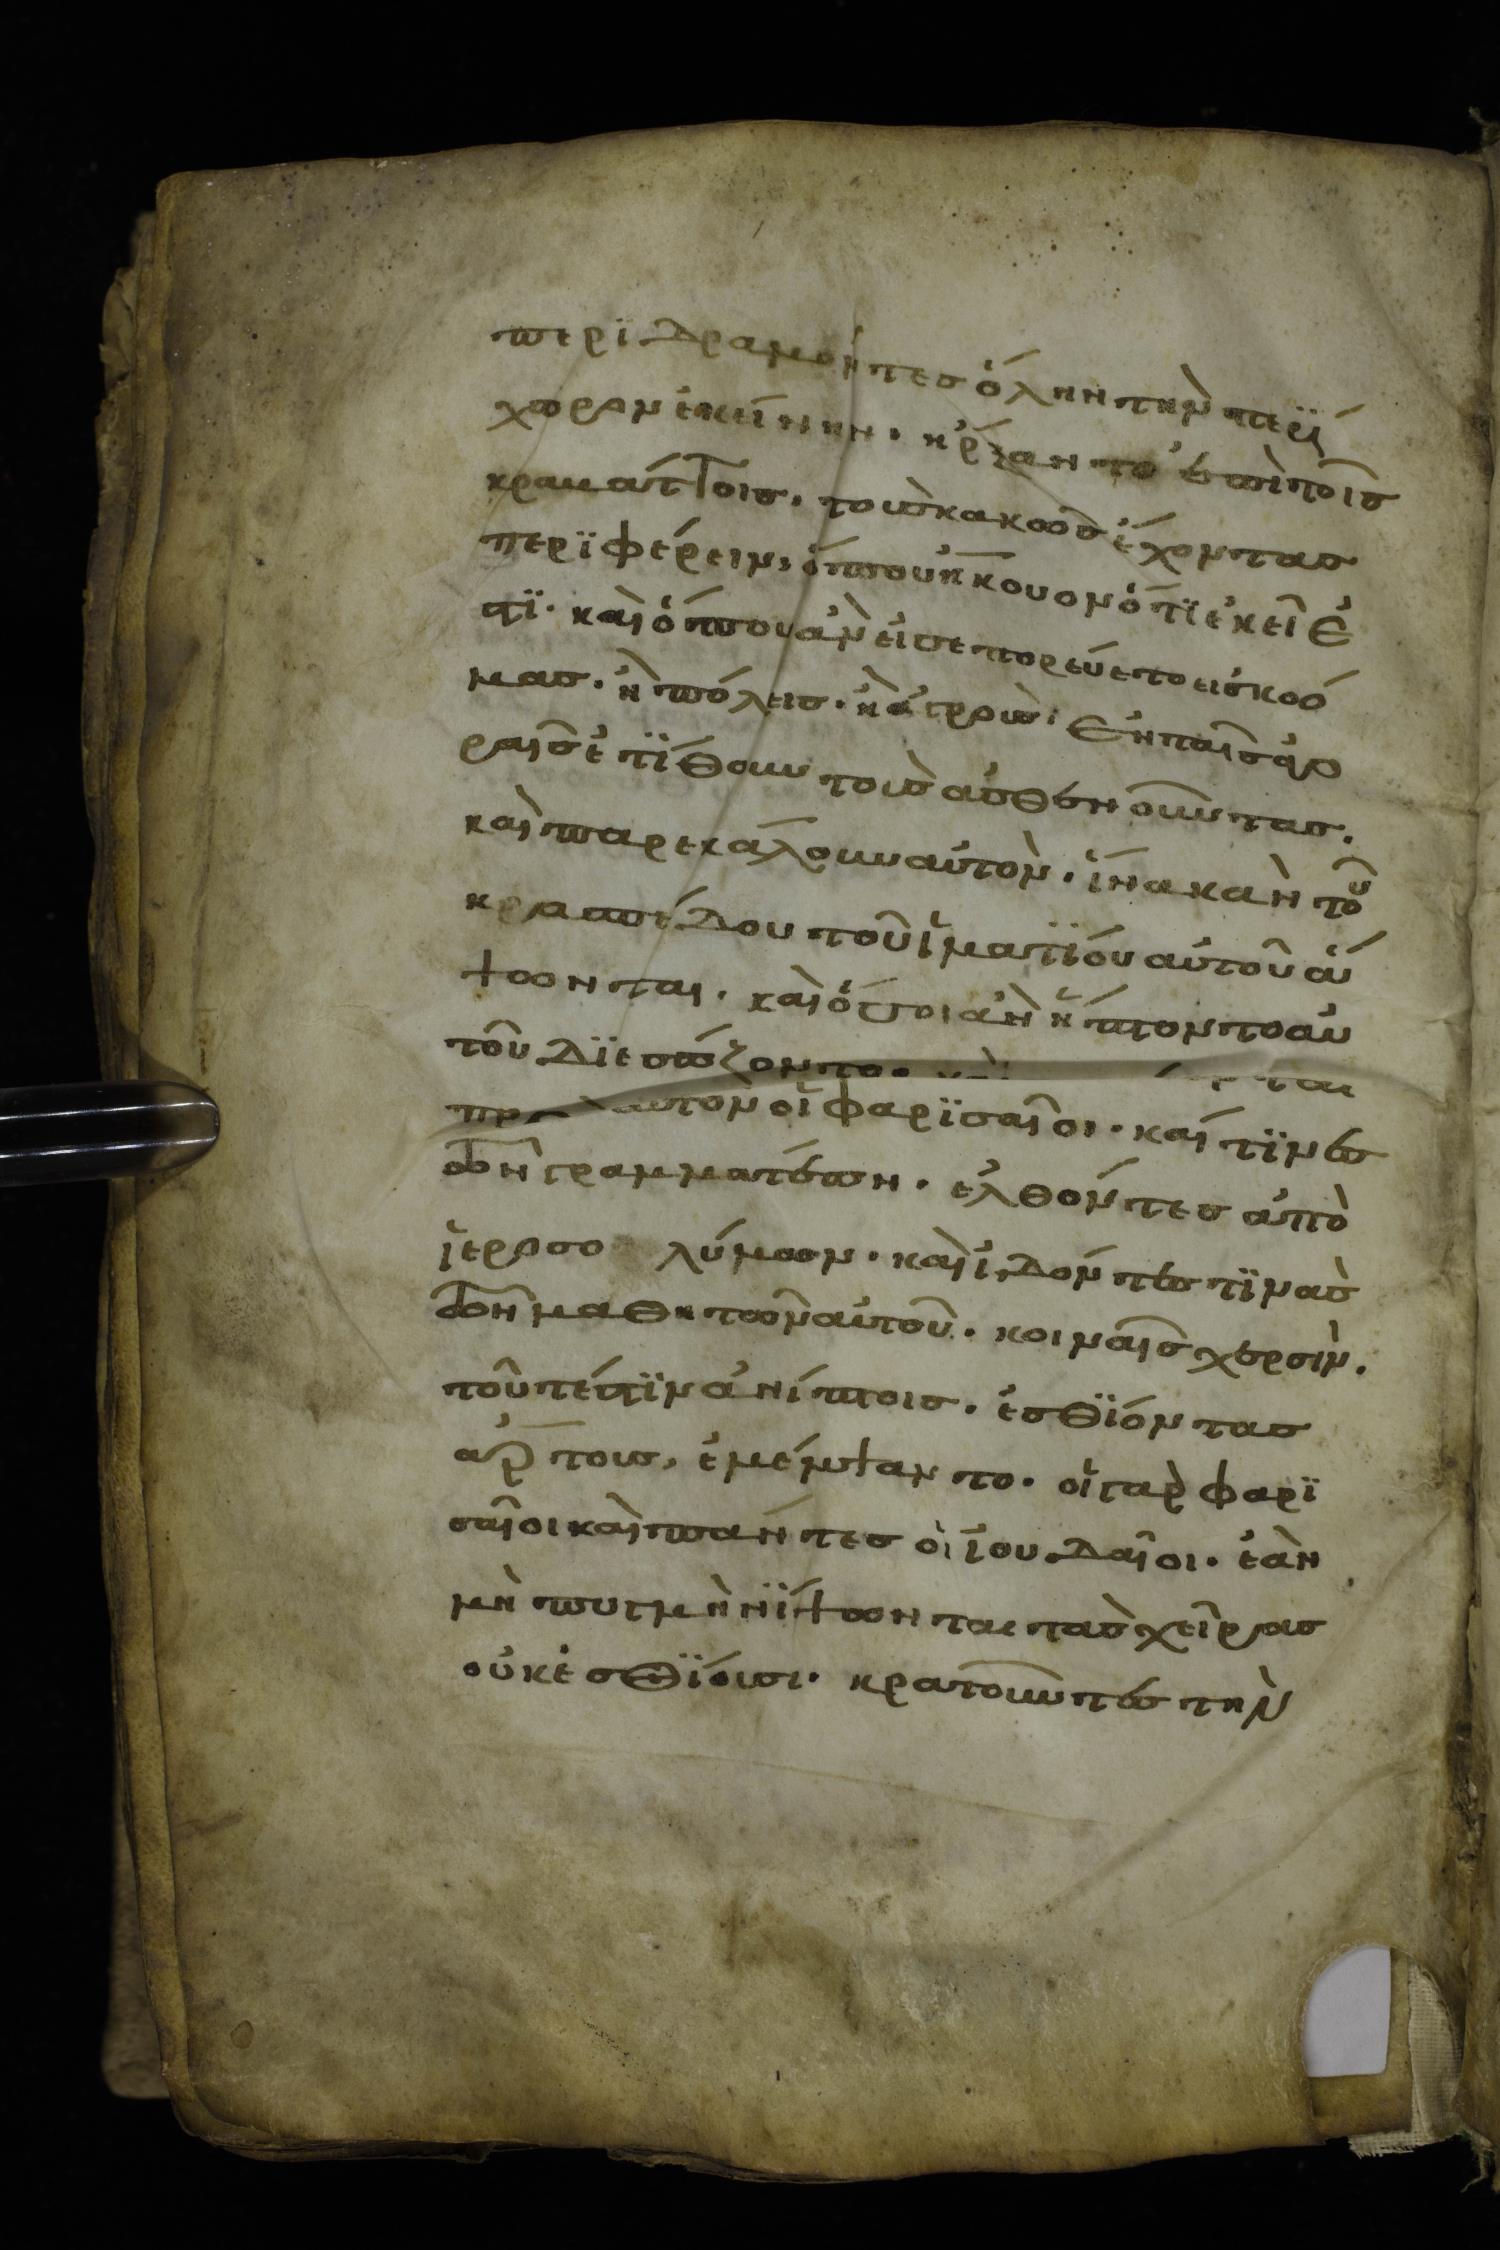 περϊδραμόντες ὅλην τὴν περί
χορον ἐκείνην. ἤρξαντο ἐπὶ τοῖς
κραμάττοις, τοὺς κακῶς ἔχοντας
περϊφέρειν, ὅπου ἤκουον ὅτϊ ἐκεῖ ἐ
στϊ. καὶ ὅπου ἂν εἰσεπορεύετο εἰς κώ
μας. ἢ πόλεις. ἢ ἀγροὺς. ἐν ταῖς ἀγο
ραῖς ἐτΐθουν τοὺς ἀσθενοῦντας.
καὶ παρεκάλουν αὐτὸν. ἵνα κἂν τοῦ
κρασπέδου τοῦ ἱματΐου αὐτοῦ ἅ
ψωνται. καὶ ὅσοι ἂν ἥπτοντο αὐ
τοῦ διεσώζοντο. καὶ
αὐτὸν οἱ φαρϊσαῖοι. καί τϊνὲς
τῶν γραμματέων. ἐλθόντες ἀπὸ
ἱεροσολύμων. καὶ ἰδόντες τϊνὰς
τῶν μαθητῶν αὐτοῦ. κοιναῖς χερσὶν.
τουτέστϊν ἀνίπτοις. ἐσθϊόντας
ἄρτους, ἐμέμψαντο. οἱ γὰρ φαρϊ
σαῖοι καὶ πάντες οἱ ἰουδαῖοι. ἐὰν
μὴ πυγμὴ νΐψωνται τὰς χεῖρας
οὐκ ἐσθϊόυσι. κρατοῦντες τὴν